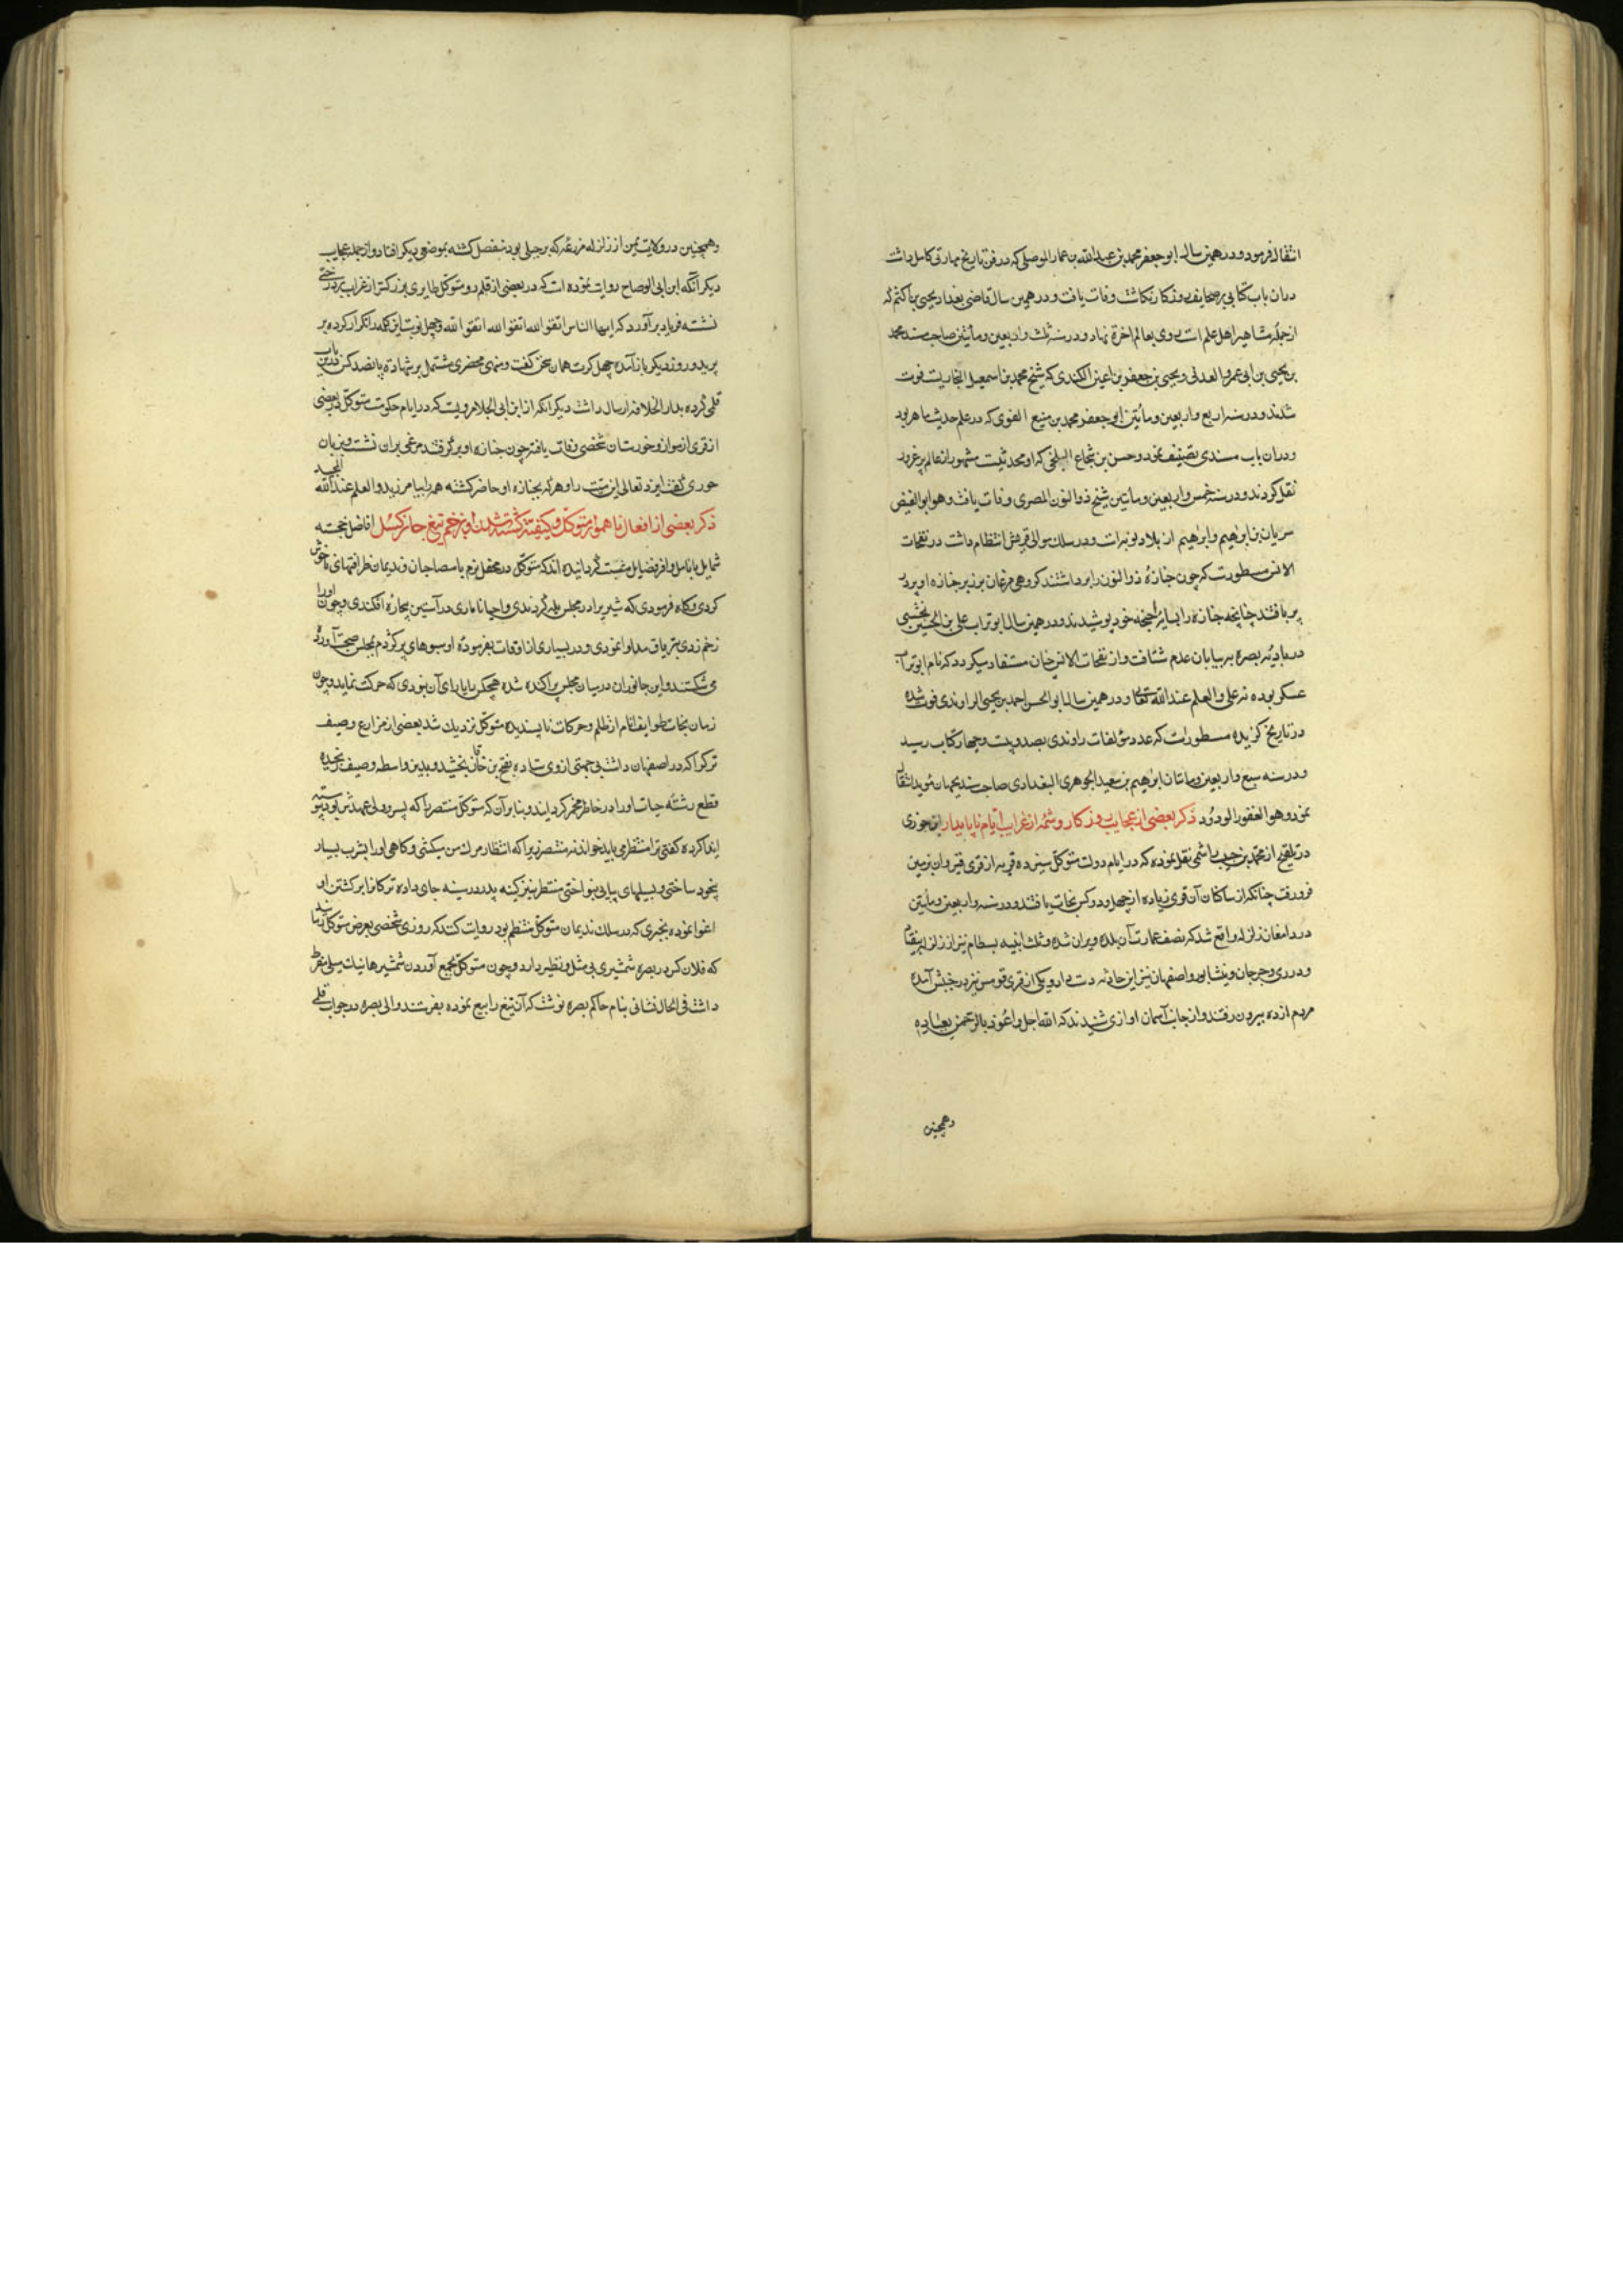 انتقال فرمود و در همین سال ابو جعفر محمد بن عبدالله بن عمار الموصلی که در فن تاریخ مهارتی کامل داشت
دران باب کتابی بر صحایف روزکار نکاشت وفات یافت و در همین سال قاضی بغداد یحیی بن اکثم که
از جمله مشاهیر اهل علم است روی بعالم اخرة نهاد و در سنه ثلث و اربعین و مأتین صاحب مسند محمد
بن یحیی بن ابی عمرو العدنی و یحیی بن جعفر بن اعین الکندی که شیخ محمد بن اسمعیل البخاریست فوت
شدند و در سنه اربع و اربعین و مأتین ابو جعفر محمد بن منیع البغوی که در علم حدیث ماهر بود
ودران باب مسندی تصنیف نمود و حسن بن شجاع البلخی که او محدثیست مشهور از عالم پر غرور
نقل کردند و در سنه خمس و اربعین و مأتین شیخ ذو النون المصری وفات یافت و هو ابو الفیض
بن ابرهیم و ابرهیم از بلاد نوبه است و در سلک موالی قریش انتظام داشت در نفحات
الانس مسطورست که چون جنازهٔ ذو النون را برداشتند کروهی مرغان بر زبر جنازه او پر در
پر بافتند چنانچه جنازه را بسایهٔ اجنحهٔ خود پوشیدند و در همین سال ابو تراب علی بن الحسین نخشبی
در بادیهٔ بصره بر بیابان عدم شتافت و از نفحات الانس چنان مستفاد میکردد که نام ابو تراب
عسکر بوده نه علی و العلم عند الله تعالی و در همین سال ابو الحسن احمد بن یحیی الراوندی فوت شده
در تاریخ کزیده مسطورست که عدد مؤلفات راوندی بصد و بیست و چهار کتاب رسید
و در سنه سبع و اربعین و ماتان ابرهیم بن سعید الجوهری البغدادی صاحب مسند بجهان مؤبد انتقال
نمود و هو الغفور الودود ذکر بعضی از عجایب روزکار و شمهٔ از غرایب ایام ناپایدار ابن جوزی
در تلقیح از محمد بن حبیب هاشمی نقل نموده که در ایام دولت متوکل سیزده قریه از قری قیروان بزمین
فرو رفت چنانکه از ساکنان آن قری زیاده از چهل و دو کس نجات نیافتند و در سنه و اربعین و مأتین
در دامغان زلزله واقع شد که نصف عمارت آن بلده ویران شده و ثلث ابنیه بسطام نیز از زلزله بیفتاد
و در ری و جرجان و نیشابور و اصفهان نیز این حادثه دست داد و یکی از قری قومس نیز در جنبش آمده
مردم از ده بیرون رفتند و از جانب آسمان اوازی شنیدند که الله اجل و اعود بالرحمن بعباده
وهمچنین
وهمچنین در ولایت یمن از زلزله مزرعهٔ که بر جبلی بود منفصل کشته بموضعی دیکر افتاد و از جمله عجایب
دیکر آنکه ابن ابی الوضاح روایت نموده است که در بعضی از قلمرو متوکل طایری بزرکتر از غراب بر درختی
نشسته فریاد برآورد که ایها الناس اتقوا الله اتقوا الله اتقوا الله و چهل نوبت این کلمه را تکرار کرده بر
پرید و روز دیکر باز آمده چهل کرت همان سخن کفت و منهی محضری مشتمل بر شهادة پانصد کس درین باب
قلمی کرده بدار الخلافه ارسال داشت دیکر آنکه از ابن ابی الجلا مرویست که در ایام حکومت متوکل در بعضی
از قری اهواز و خوزستان شخصی وفات یافته چون جنازه او بر کرفتند مرغی بران نشست و بزبان
خوزی کفت ایزد تعالی این میت را و هر که بجنازه او حاضر کشته همه را بیامرزید و العلم عند الله المجید
ذکر بعضی از افعال ناهموار متوکل و کیفیت کشته شدن او بزخم تیغ جان کسل افاضل خجسته
شمایل با نامل وافر فضایل مثبت کردانیده اند که متوکل در محفل بزم با مصاحبان و ندیمان ظرافتهای ناخوش
کردی و کاه فرمودی که شیر را در مجلس رها کردندی و احیانا ماری در آستین بیچارهٔ افکندی و چون اورا
زخم زدی بتریاق مداوا نمودی و در بسیاری از اوقات بفرموده او سبوهای پر کژدم بمجلس صحبت آورده
می شکستند و این جانوران در میان مجلس پراکنده شده هیچکس را یارای آن نبودی که حرکت نماید و چون
زمان نجات طوایف انام از ظلم و حرکات ناپسندیده متوکل نزدیک شد بعضی از مزارع وصیف
ترک را که در اصفهان داشت بی جهتی از وی ستاده بفتح بن خاقان بخشید و بدین واسطه وصیف رنجیده
قطع رشته حیات اورا در خاطر مخمر کردانید و بنابر آن که متوکل منتصر را که پسر و ولی عهدش بود پیوسته
ایذا کرده کفتی ترا منتظر می باید خواند نه منتصر زیرا که انتظار مرک من میکشی و کاهی اورا بشرب بسیار
بیخود ساختی و بسیلیهای پیاپی بنواختی منتصر نیز کینه پدر در سینه جای داده ترکانرا بر کشتن او
اغوا نموده بحتری که در سلک ندیمان متوکل منتظم بود روایت کند که روزی شخصی بعرض متوکل رسانید
که فلان کس در بصره شمشیری بی مثل و نظیر دارد و چون متوکل بجمع آوردن شمشیرها نیک میلی مفرط
داشت فی الحال نشانی بنام حاکم بصره نوشت که آن تیغ را بیع نموده بفرستد و الی بصره در جواب قلمی